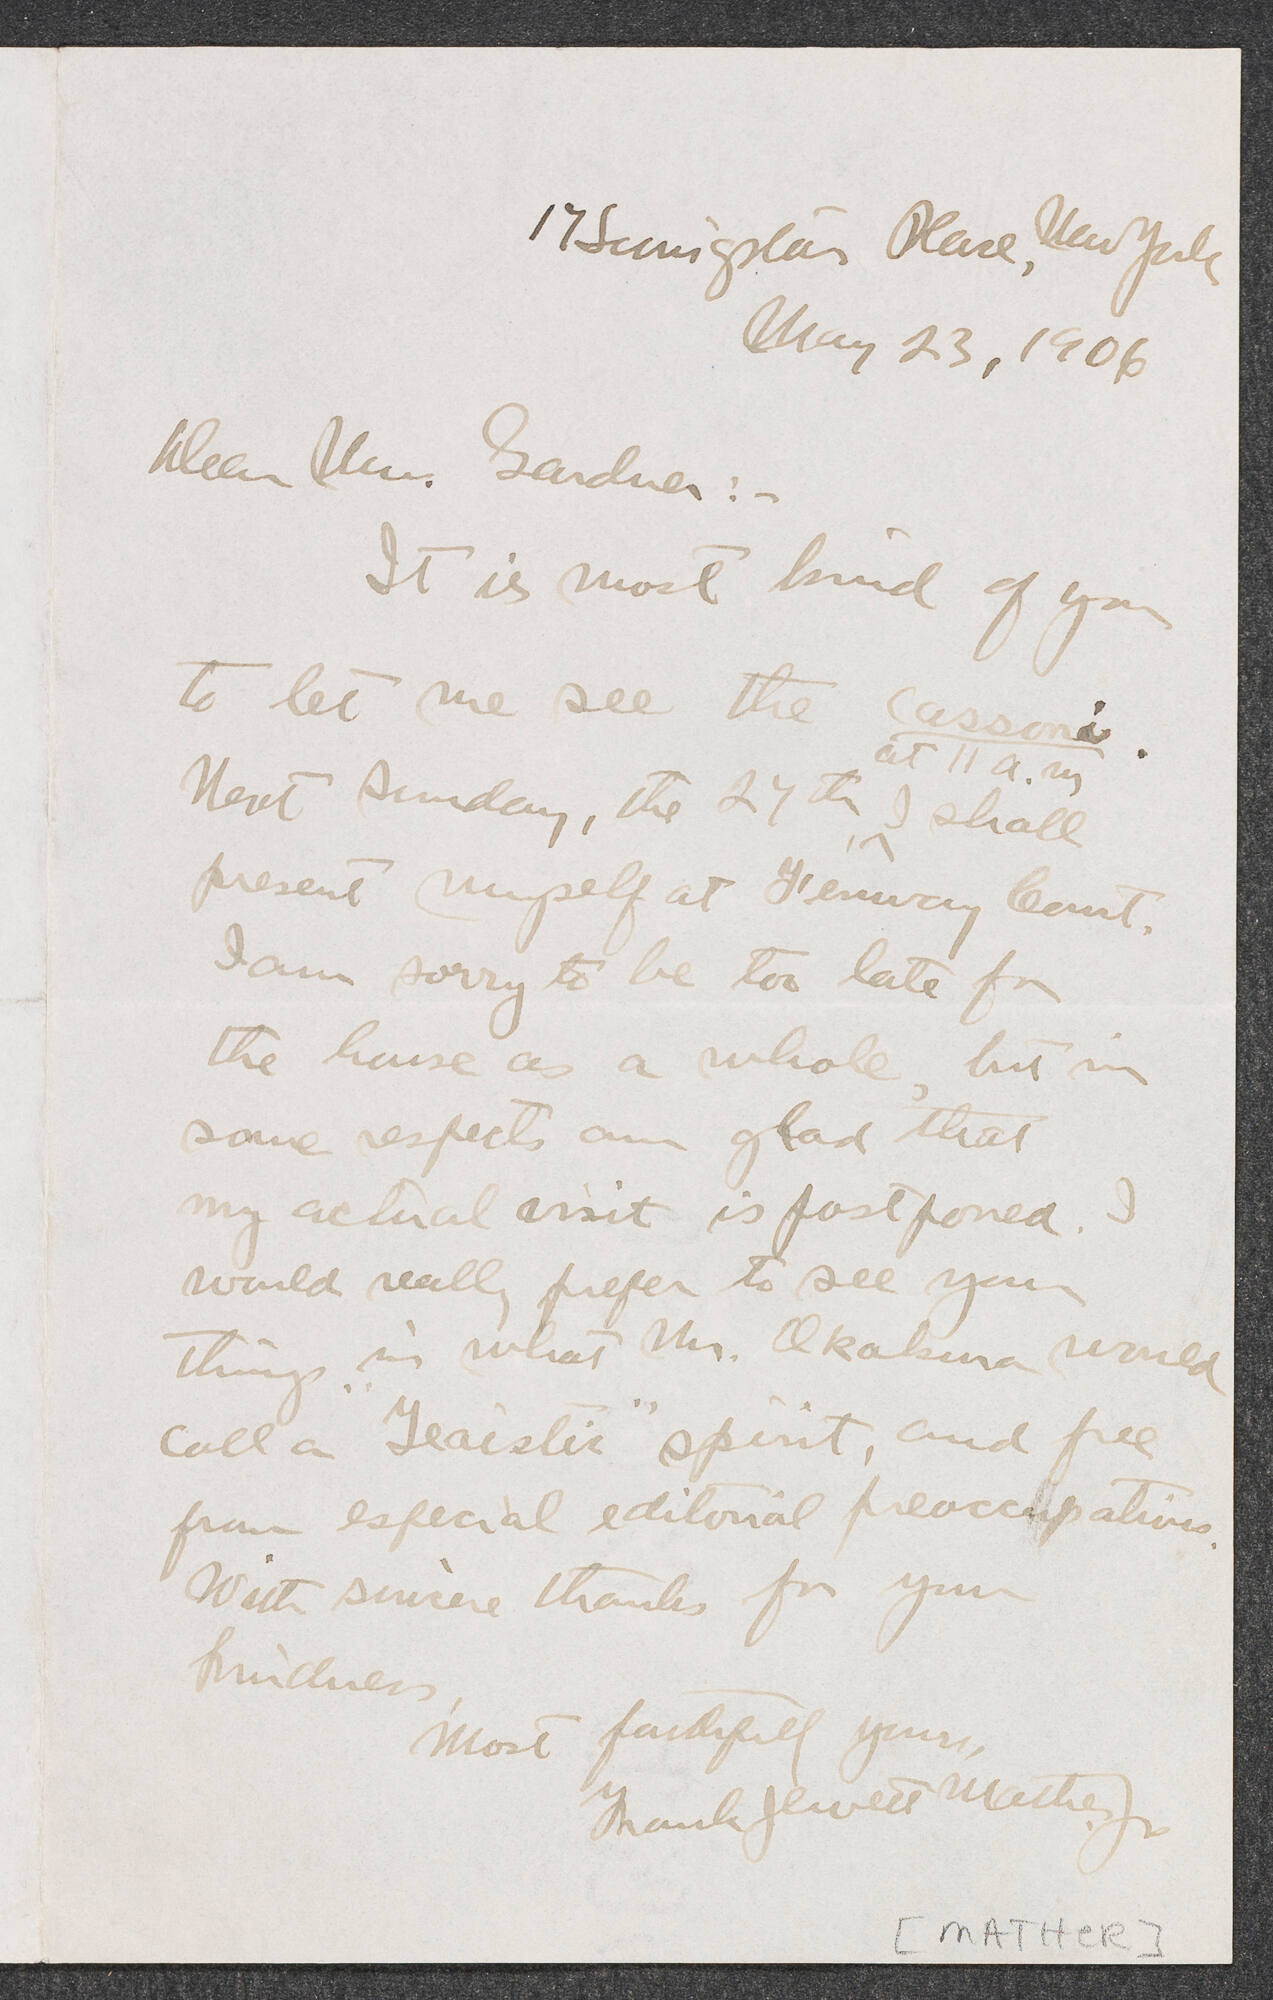 17 Livingston Place, New York
May 23, 1906
Dear Mrs. Gardner:-
It is most kind of you
to let me see the cassoni.
at 11 a.m
Next Sunday, the 27th, I shall
present myself at Fenway Court.
I am sorry to be too late for
the house as a whole, but in
some respects am glad that
my actual visit is postponed. I
would really prefer to see your
things in what Mr. Okakura would
call a "Teaistic" spirit, and free
from especial editorial preoccupations.
With sincere thanks for your
kindness,
Most faithfully yours,
Frank Jewett Mather Jr
[MATHER]